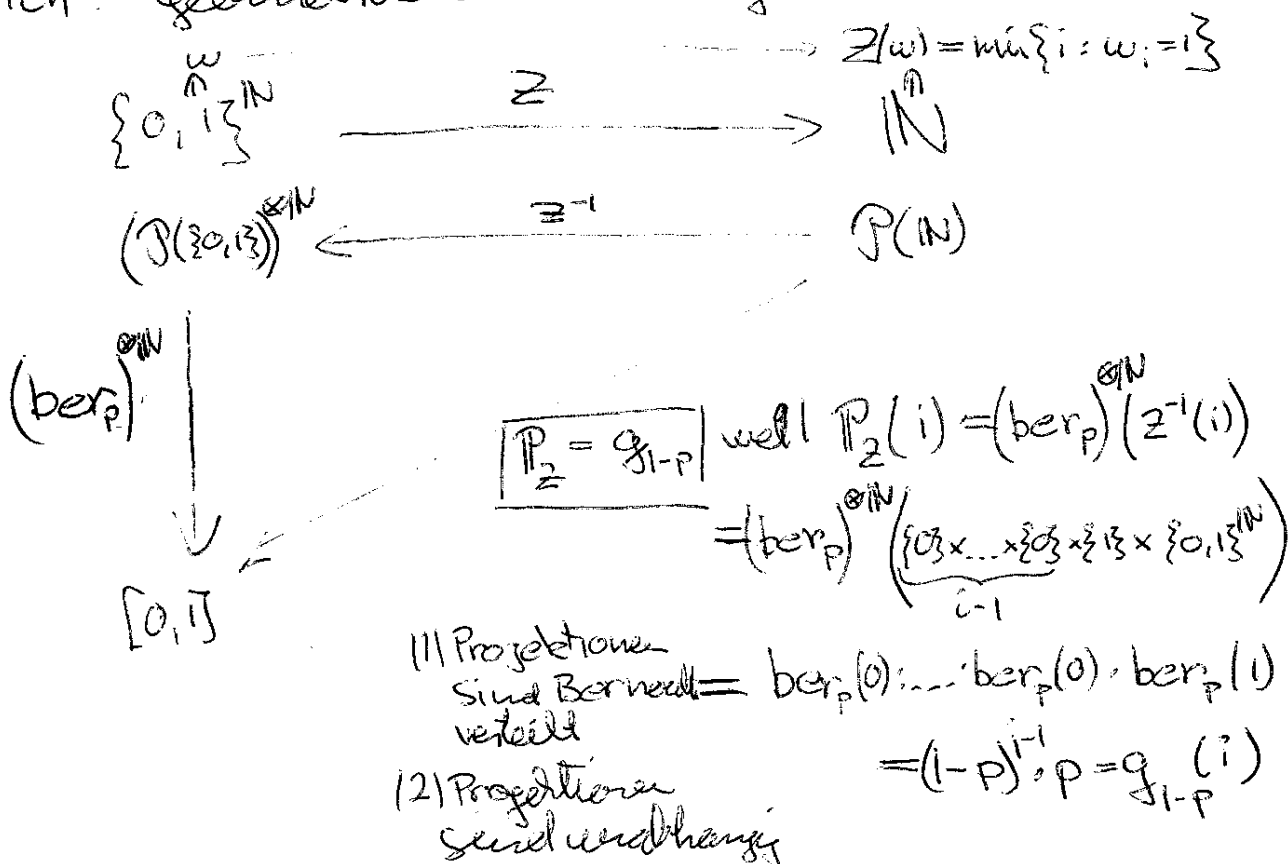 ω Z(ω) = min{i : ω_i = 1}
{0,1}^ℕ Z ℕ
(P({0,1}))^{⊗ℕ} Z^{-1} P(ℕ)
(ber_p)^{⊗ℕ}
ℙ_Z = g_{1-p} weil ℙ_Z(i) = (ber_p)^{⊗ℕ}(Z^{-1}(i))
= (ber_p)^{⊗ℕ}({0}×...×{0}×{1}×{0,1}^ℕ)
i-1
[0,1]
(1) Projektionen
sind Bernoulli = ber_p(0)·...·ber_p(0)·ber_p(1)
verteilt
= (1-p)^{i-1}·p = g_{1-p}(i)
(2) Projektionen
sind unabhängig